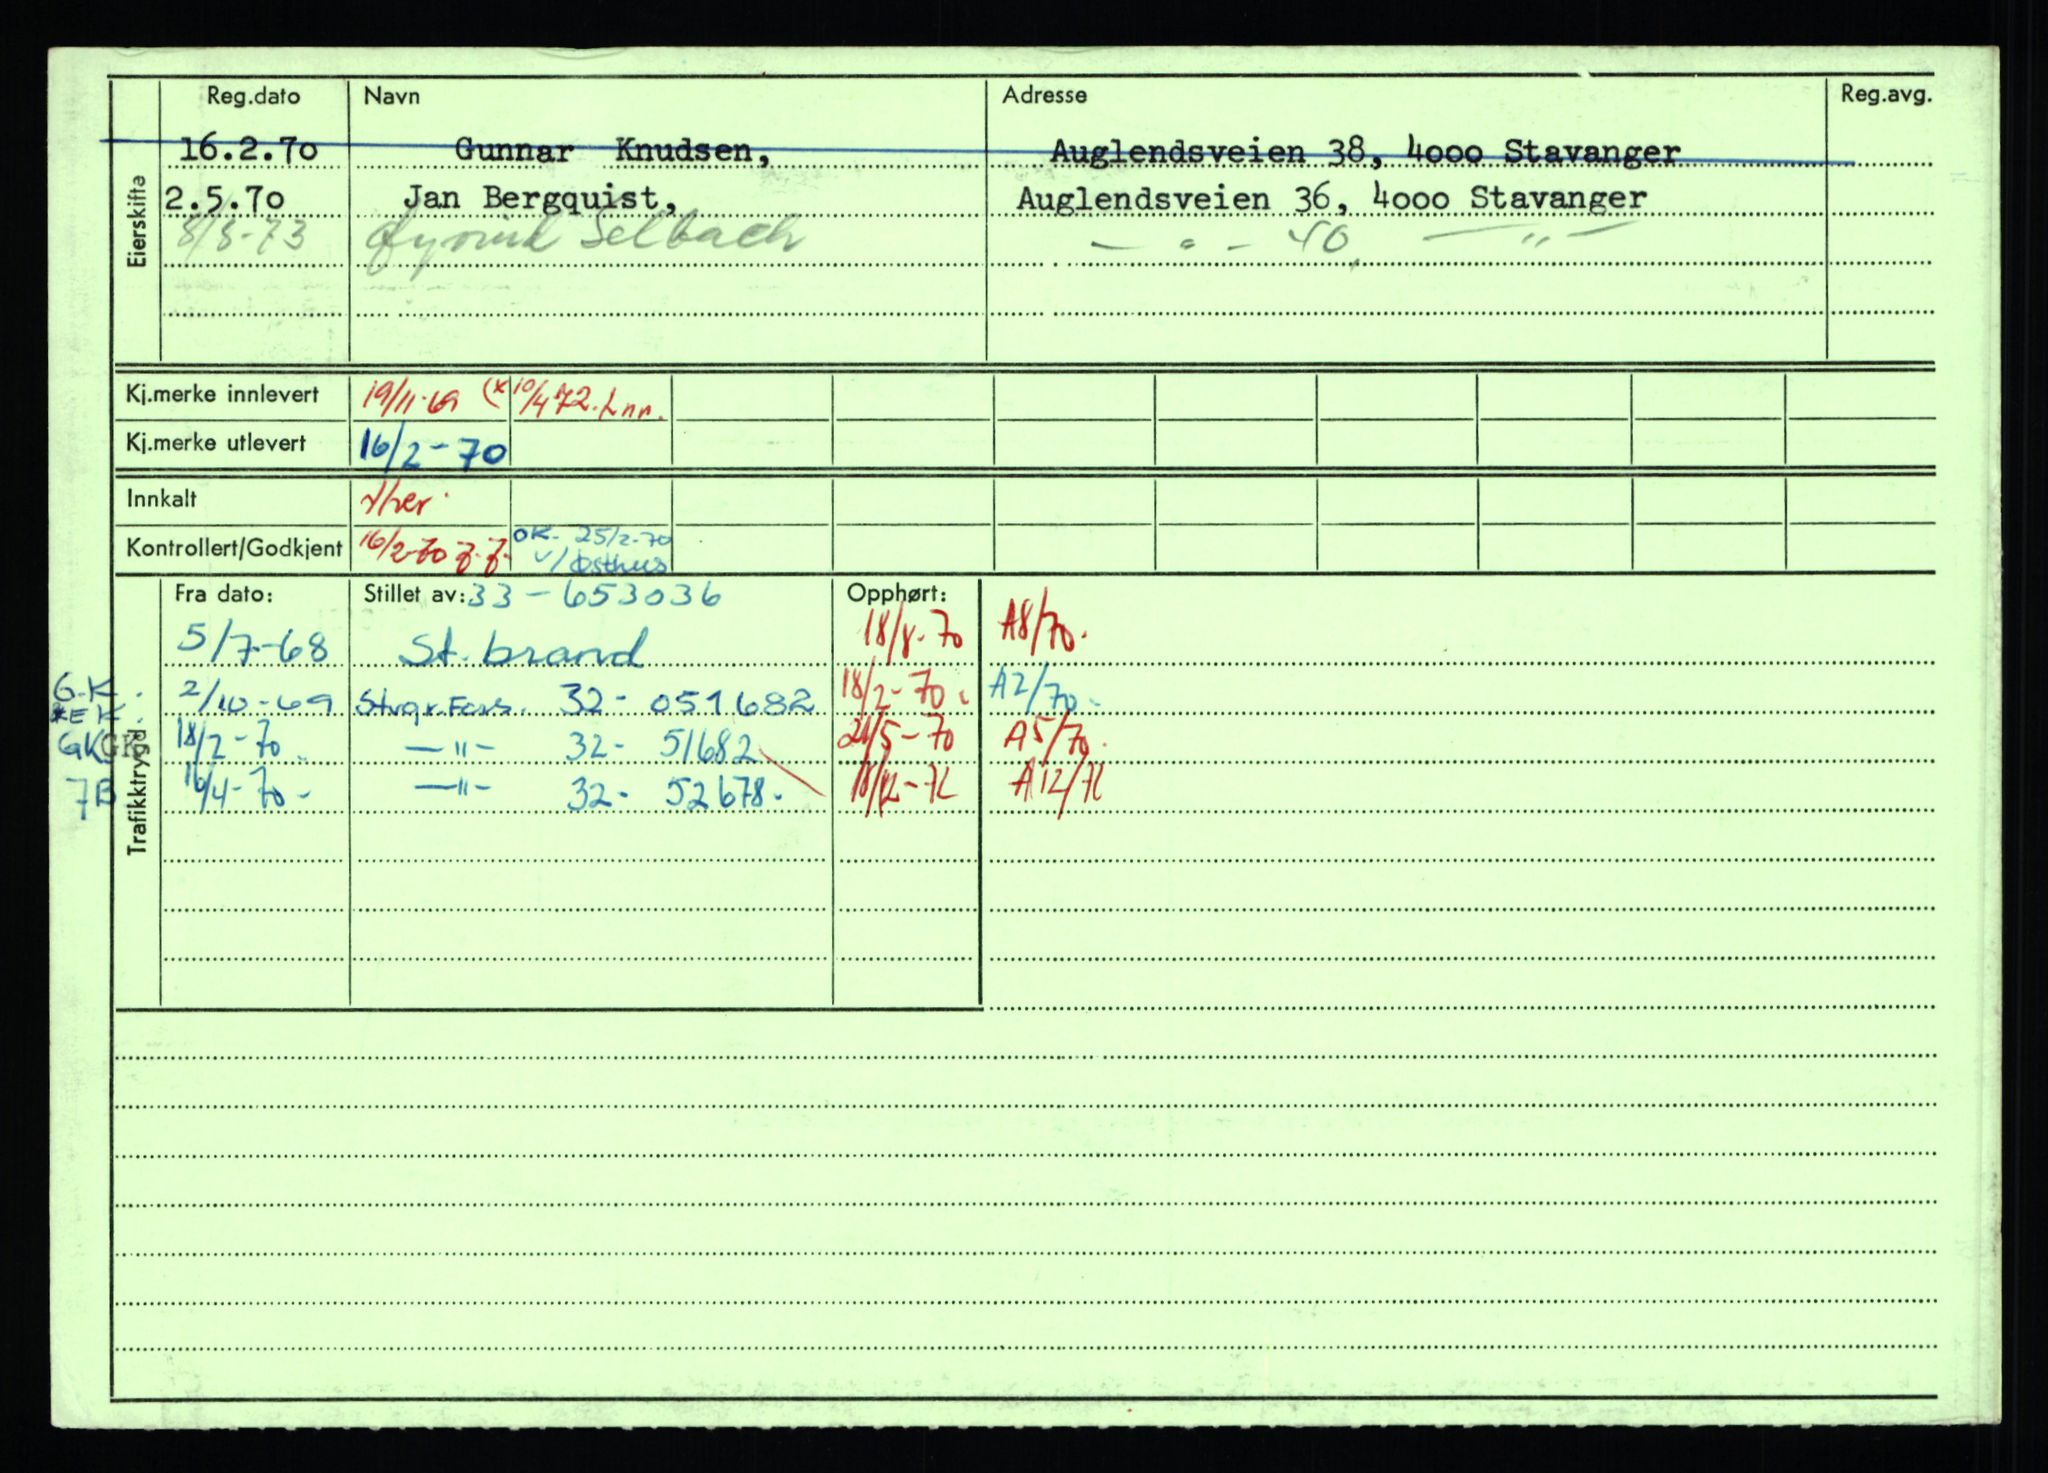 Reg.dato Navn Adresse Reg.avg.
Eierskifte
16.2.70 Gunnar Knudsen, Auglendsveien 38, 4000 Stavanger
2.5.70 Jan Bergquist, Auglendsveien 36, 4000 Stavanger
8/8-73 Øyvind Selbach — " — 40, — " —
Kj.merke innlevert 19/11-69 (x 10/4 72.
Kj.merke utlevert 16/2-70
Innkalt
Kontrollert/Godkjent 16/2-70 OK. 25/2-70
v/Østhus
Trafikktrygd.
Fra dato: Stillet av: 33-653036 Opphørt:
5/7-68 St.brand 18/8-70 A8/70.
G.K. 2/10-69 32-051682 18/2-70. A2/70.
*EK.
GK GK 18/2-70. —"— 32-51682 21/5-70 A5/70.
7B 16/4-70- —"— 32-52678. A12/72